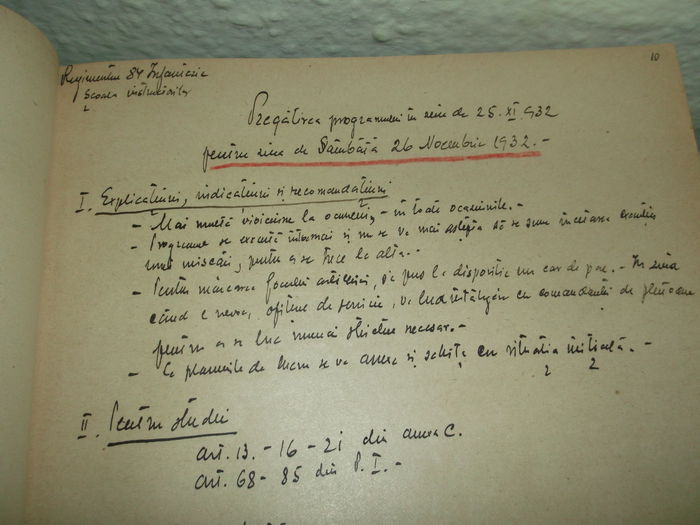 10
Regimentul 84 Infanterie
Școala instructorilor
Pregătirea programului în ziua de 25.XI.932
pentru ziua de Sâmbătă 26 Noembrie 1932.-
I. Explicațiuni, indicațiuni și recomandațiuni
- Mai multă la oameni, - în toate ocaziunile.-
- Programe se execută întocmai și nu se va mai aștepta să se sune încetarea
unei mișcări, pentru a se trece la alta.-
- Pentru marcarea focului artileriei, se pus la dispoziție un car de - În ziua
când e nevoe, ofițerul de serviciu, va lua înțelegere cu comandantul de
pentru a se lua necesar.-
- La planurile de lucru se va anexa și schița cu situația inițială.-
2 2
II. Pentru studii
art. 13.-16-21 din anexa C.
art. 68-85 din P. I.-